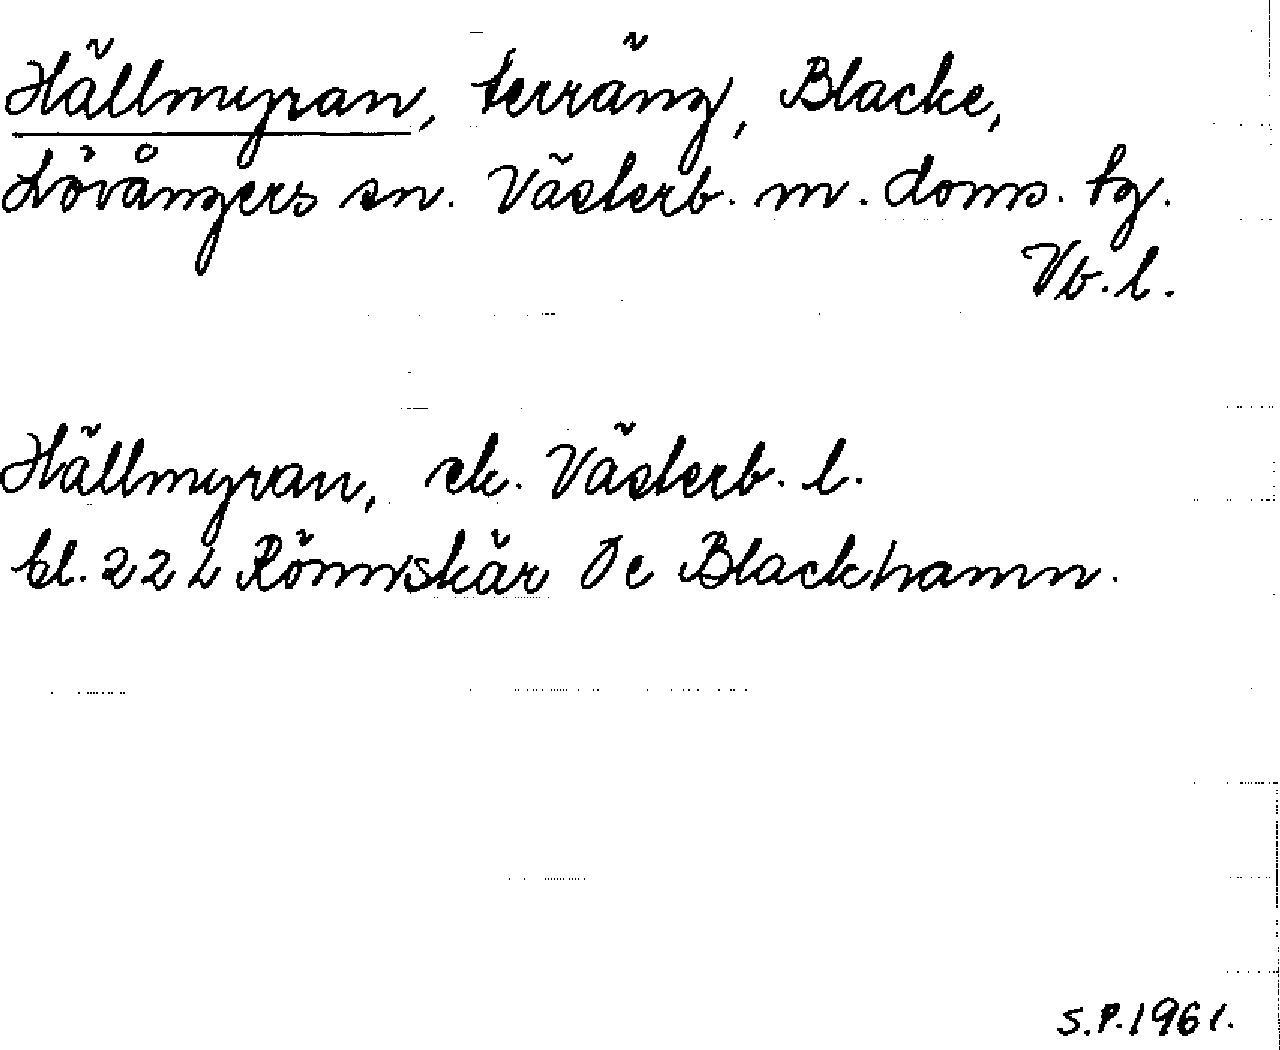 Hällmyran, terräng, Blacke,
Lövångers sn. Västerb. m. doms. tg.
Vb. l.
Hällmyran, ek. Västerb. l.
bl. 22 L Rönnskär Öe Blackhamn.
S.P. 1961.